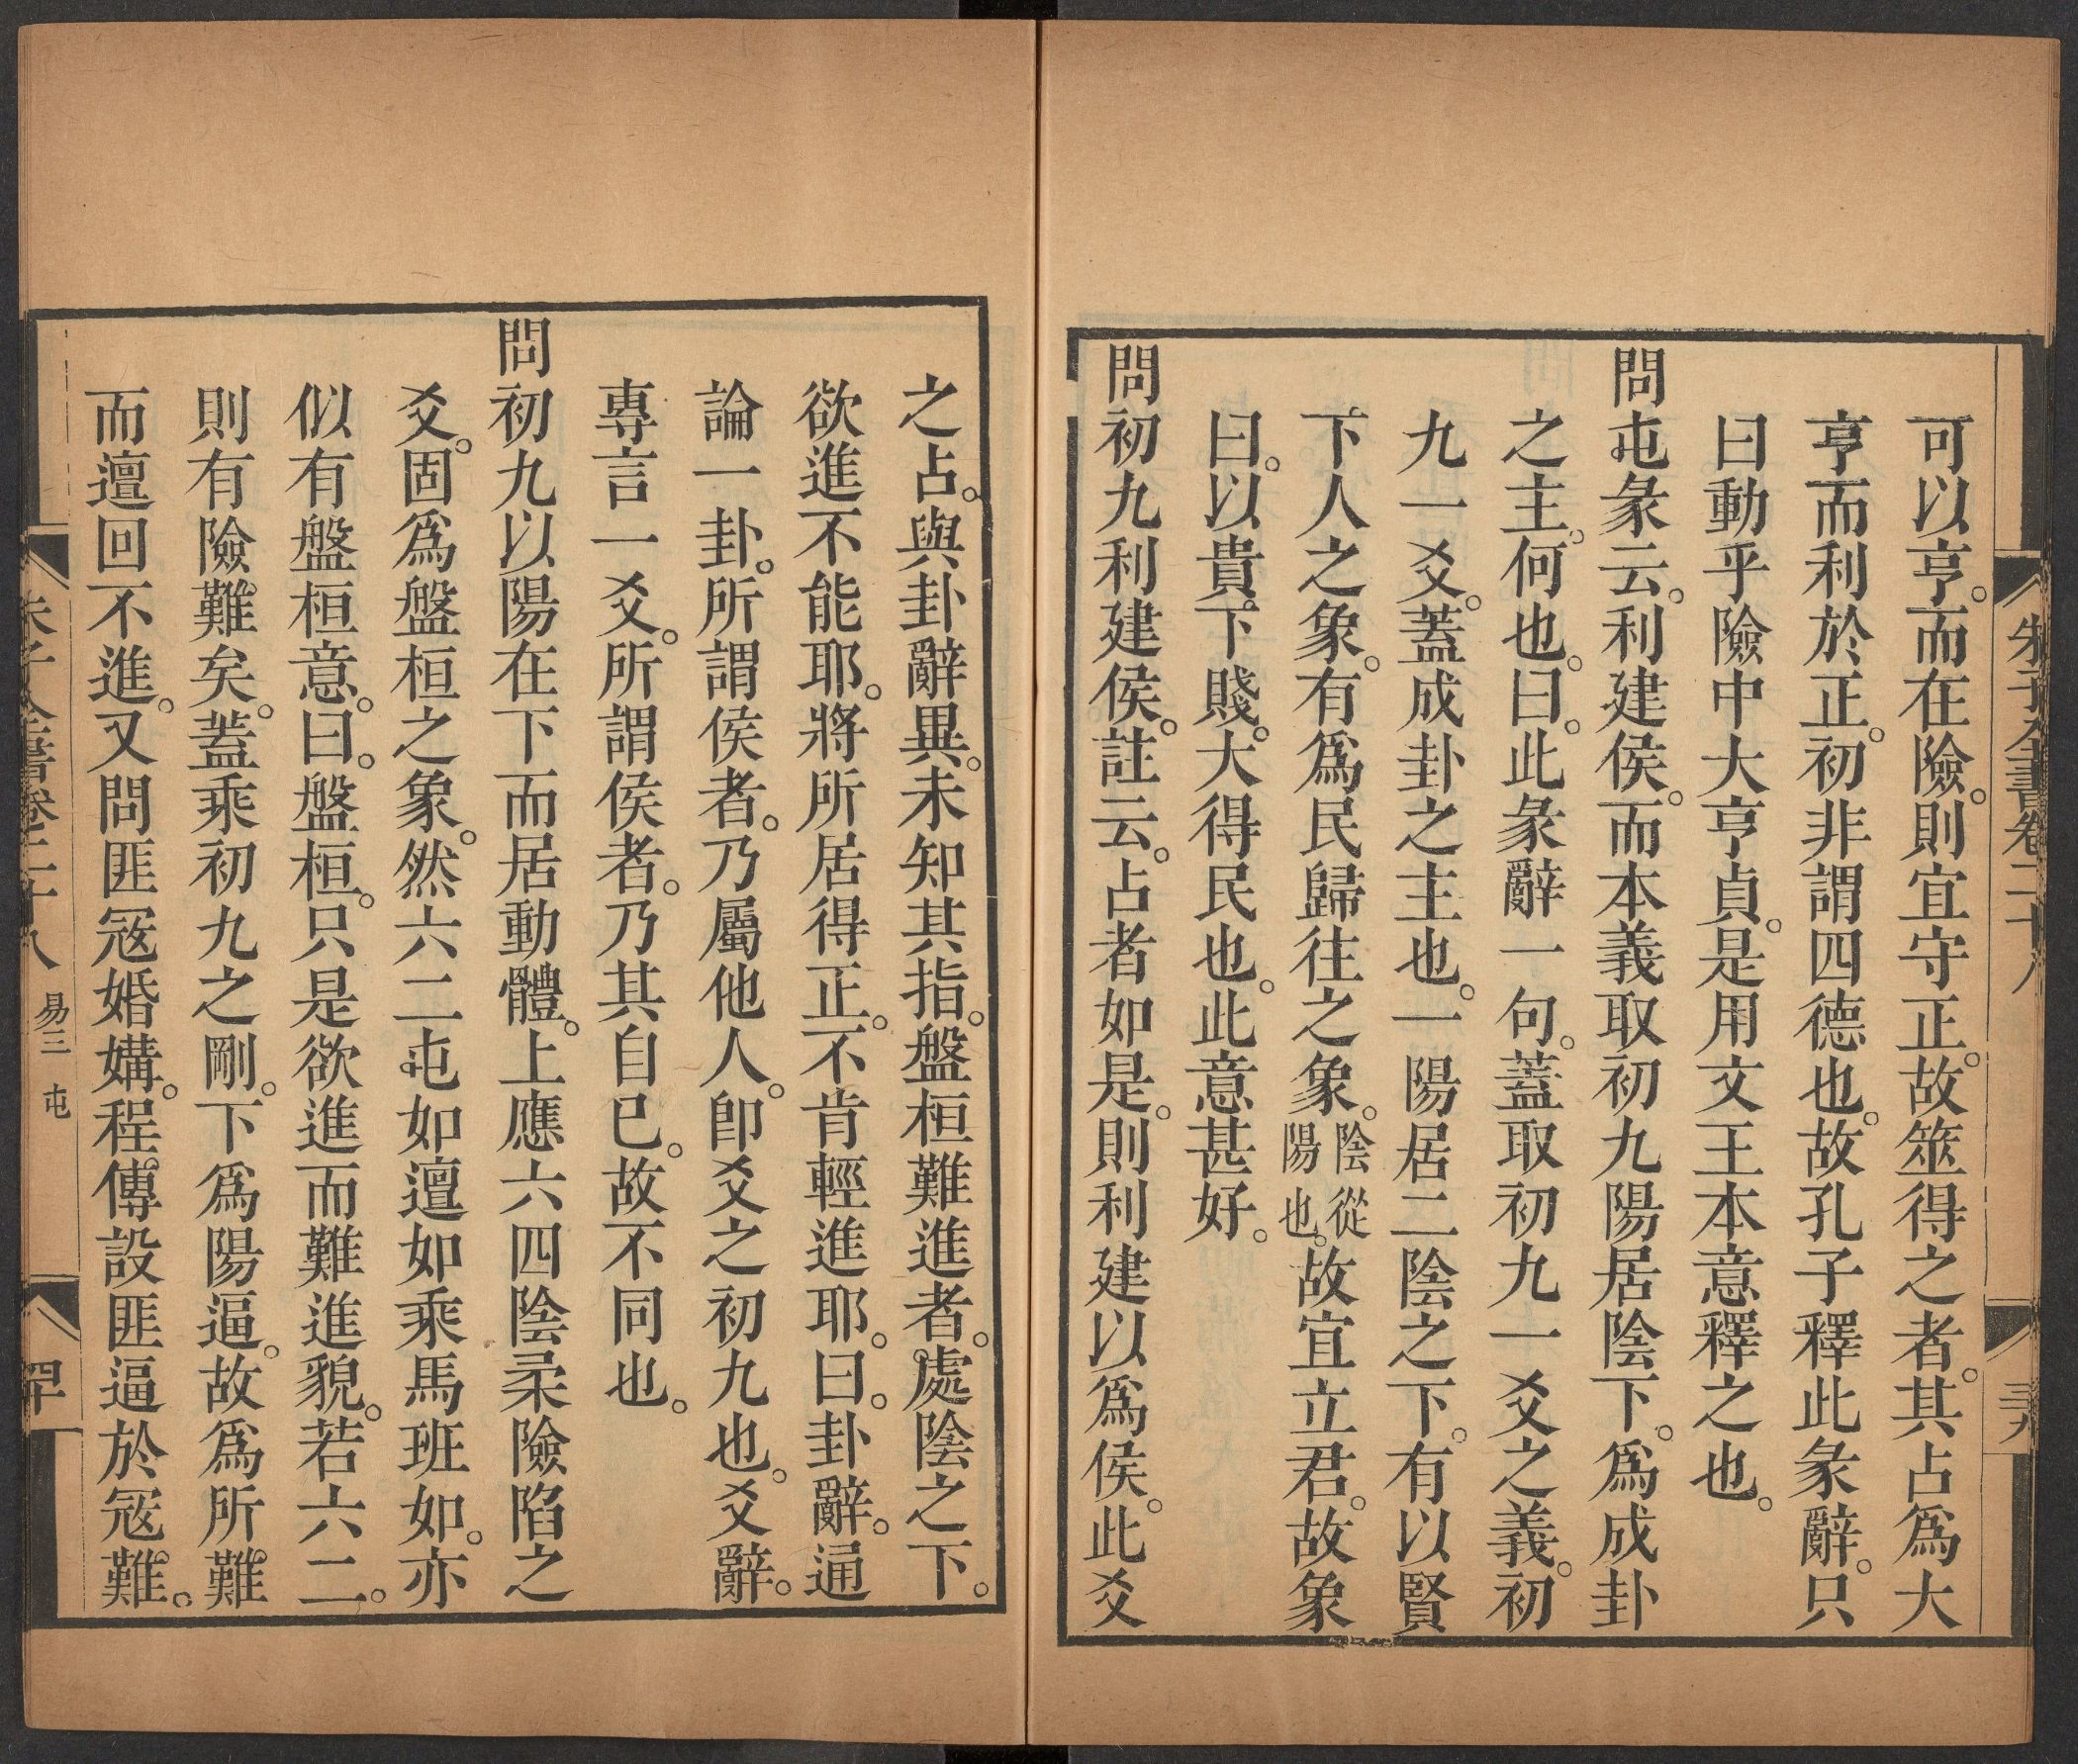 朱子全書卷二十八
可以亨。而在險。則宜守正。故筮得之者。其占爲大
亨而利於正。初非謂四德也。故孔子釋此彖辭。只
曰動乎險中大亨貞。是用文王本意釋之也。
問屯彖云。利建侯。而本義取初九陽居陰下。爲成卦
之主。何也。曰。此彖辭一句。蓋取初九一爻之義。初
九一爻。蓋成卦之主也。一陽居二陰之下。有以賢
下人之象。有爲民歸往之象。陰從陽也。故宜立君。故象
曰。以貴下賤。大得民也。此意甚好。
問初九利建侯。註云。占者如是。則利建以爲侯。此爻
之占。與卦辭異。未知其指。盤桓難進者。處陰之下。
欲進不能耶。將所居得正。不肯輕進耶。曰。卦辭。通
論一卦。所謂侯者。乃屬他人。卽爻之初九也。爻辭。
專言一爻。所謂侯者。乃其自已。故不同也。
問初九以陽在下而居動體。上應六四陰柔險陷之
爻。固爲盤桓之象。然六二屯如邅如乘馬班如。亦
似有盤桓意。曰。盤桓。只是欲進而難進貌。若六二。
則有險難矣。蓋乘初九之剛。下爲陽逼。故爲所難
而邅回不進。又問匪寇婚媾。程傳設匪逼於寇難。
朱子全書卷二十八 易三 屯